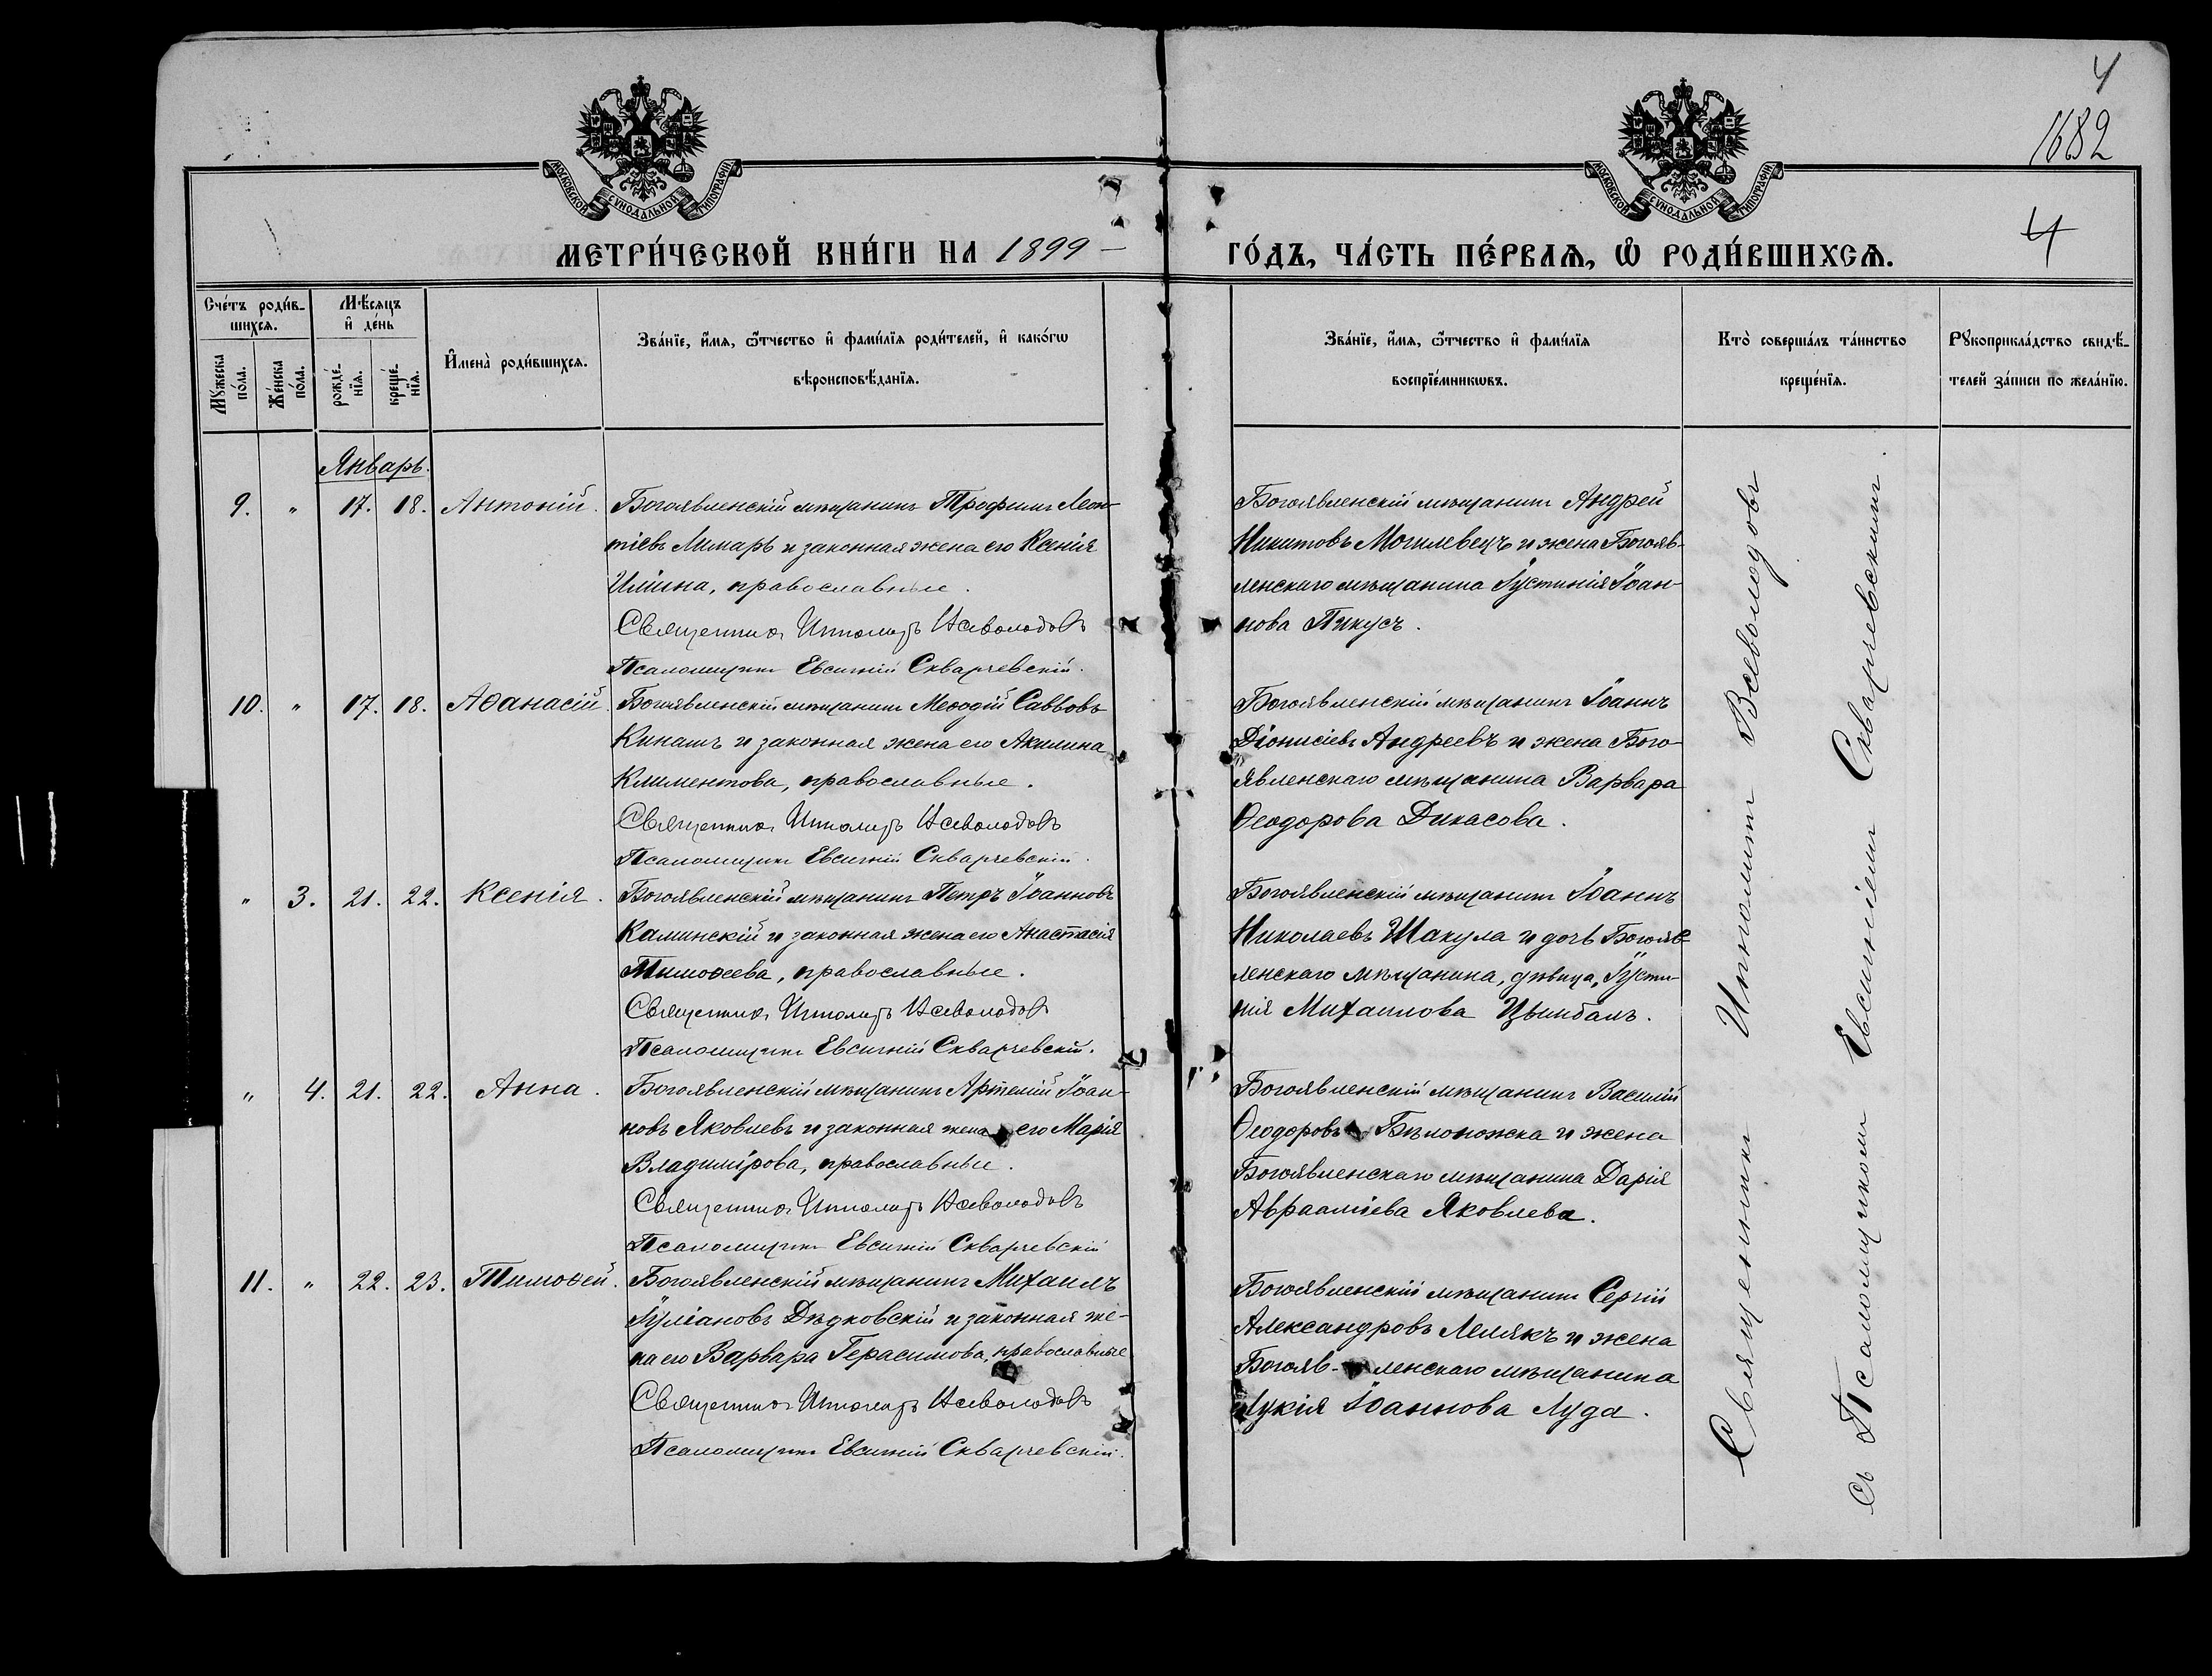 4
1682
МОСКОВСКОЙ СѴНОДАЛЬНОЙ ТИПОГРАФІИ
МОСКОВСКОЙ СѴНОДАЛЬНОЙ ТИПОГРАФІИ
МЕТРИ́ЧЕСКОЙ КНИ́ГИ НА 1899 –
ГО́ДЪ, ЧА́СТЬ ПЕ́РВАѦ, Ѡ҆ РОДИ́ВШИХСѦ.
4
Сче́тъ роди́в-
шихсѧ.
Мꙋжеска по́ла.
Же́нска по́ла.
Мѣ́сѧцъ
и҆ де́нь
рожде́-
нїѧ.
креще́-
нїѧ.
И҆мена̀ роди́вшихсѧ.
Зва́нїе, и҆́мѧ, ѻ҆́тчество и҆ фами́лїѧ роди́телей, и҆ како́гѡ
вѣроисповѣ́данїѧ.
Зва́нїе, и҆́мѧ, ѻ҆́тчество и҆ фами́лїѧ
воспрїе́мникѡвъ.
Кто̀ соверша́лъ та́инство
креще́нїѧ.
Рꙋкоприкла́дство свидѣ́-
телей за́писи по жела́нїю.
Январь.
9. " 17. 18. Антоній.
Богоявленскій мѣщанинъ Трофимъ Леон-
тіевъ Лимарь и законная жена его Ксенія
Иліина, православные.
Священникъ Ипполитъ Всеволодовъ
Псаломщикъ Евсигній Скварчевскій.
Богоявленскій мѣщанинъ Андрей
Никитовъ Могилевецъ и жена Богояв-
ленскаго мѣщанина Іустинія Іоан-
нова Пикусъ.
10. " 17. 18. Аѳанасій.
Богоявленскій мѣщанинъ Меѳодій Саввовъ
Кинашъ и законная жена его Акилина
Климентова, православные.
Священникъ Ипполитъ Всеволодовъ
Псаломщикъ Евсигній Скварчевскій.
Богоявленскій мѣщанинъ Іоаннъ
Діонисіевъ Андреевъ и жена Бого-
явленскаго мѣщанина Варвара
Ѳеодорова Дикасова.
" 3. 21. 22. Ксенія.
Богоявленскій мѣщанинъ Петръ Іоанновъ
Каминскій и законная жена его Анастасія
Тимоѳеева, православные.
Священникъ Ипполитъ Всеволодовъ
Псаломщикъ Евсигній Скварчевскій.
Богоявленскій мѣщанинъ Іоаннъ
Николаевъ Шакула и дочь Богояв-
ленскаго мѣщанина, дѣвица, Іусти-
нія Михаилова Цымбалъ.
" 4. 21. 22. Анна.
Богоявленскій мѣщанинъ Артемій Іоан-
новъ Яковлевъ и законная жена его Марія
Владимірова, православные.
Священникъ Ипполитъ Всеволодовъ
Псаломщикъ Евсигній Скварчевскій
Богоявленскій мѣщанинъ Василій
Ѳеодоровъ Бѣлоножка и жена
Богоявленскаго мѣщанина Дарія
Авраамiева Яковлева.
11. " 22. 23. Тимоѳей.
Богоявленскій мѣщанинъ Михаилъ
Іуліановъ Дѣдковскій и законная же-
на его Варвара Герасимова, православные
Священникъ Ипполитъ Всеволодовъ
Псаломщикъ Евсигній Скварчевскій.
Богоявленскій мѣщанинъ Сергій
Александровъ Лелякъ и жена
Богояв- ленскаго мѣщанина
Лукія Іоаннова Луда.
Священникъ Ипполитъ Всеволодовъ
съ Псаломщикомъ Евсигніемъ Скварчевскимъ.